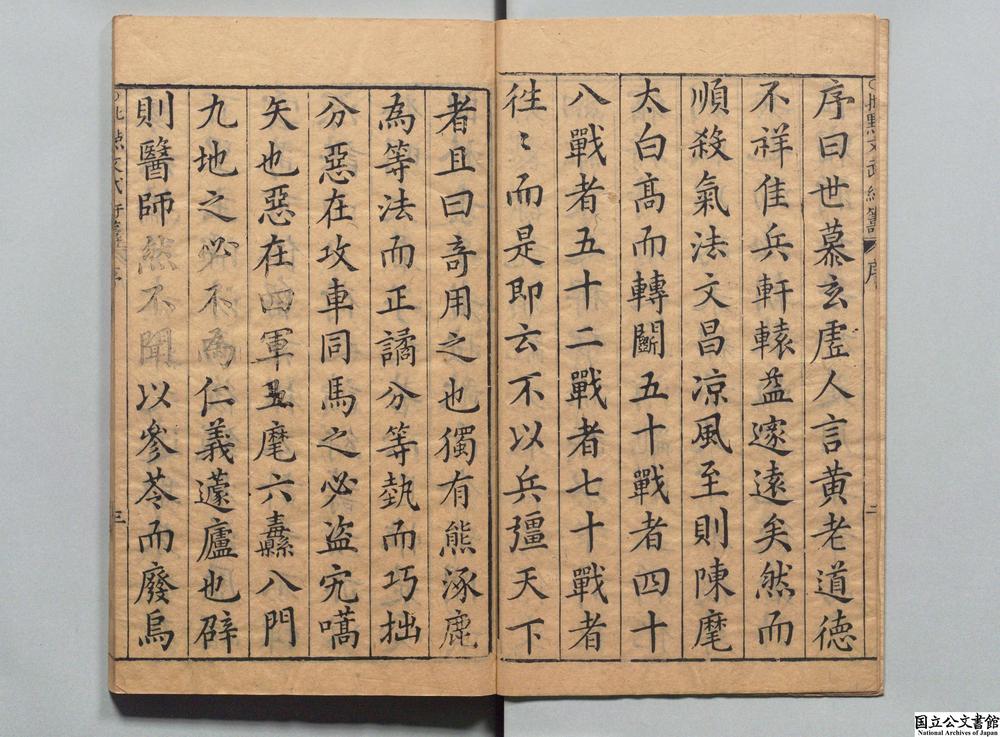 序曰世慕玄虛人言黃老道德
不祥佳兵軒轅益邃遠矣然而
順殺氣法文昌凉風至則陳麾
太白高而轉鬬五十戰者四十
八戰者五十二戰者七十戰者
徃〻而是即云不以兵彊天下
者且曰奇用之也獨有熊涿鹿
為等法而正譎分等埶而巧拙
分惡在攻車同馬之必盗宄嚆
矢也惡在四軍五麾六纛八門
九地之必不為仁義蘧廬也辟
則醫師然不聞以參苓而廢烏
序
二
三
国立公文書館
National Archives of Japan